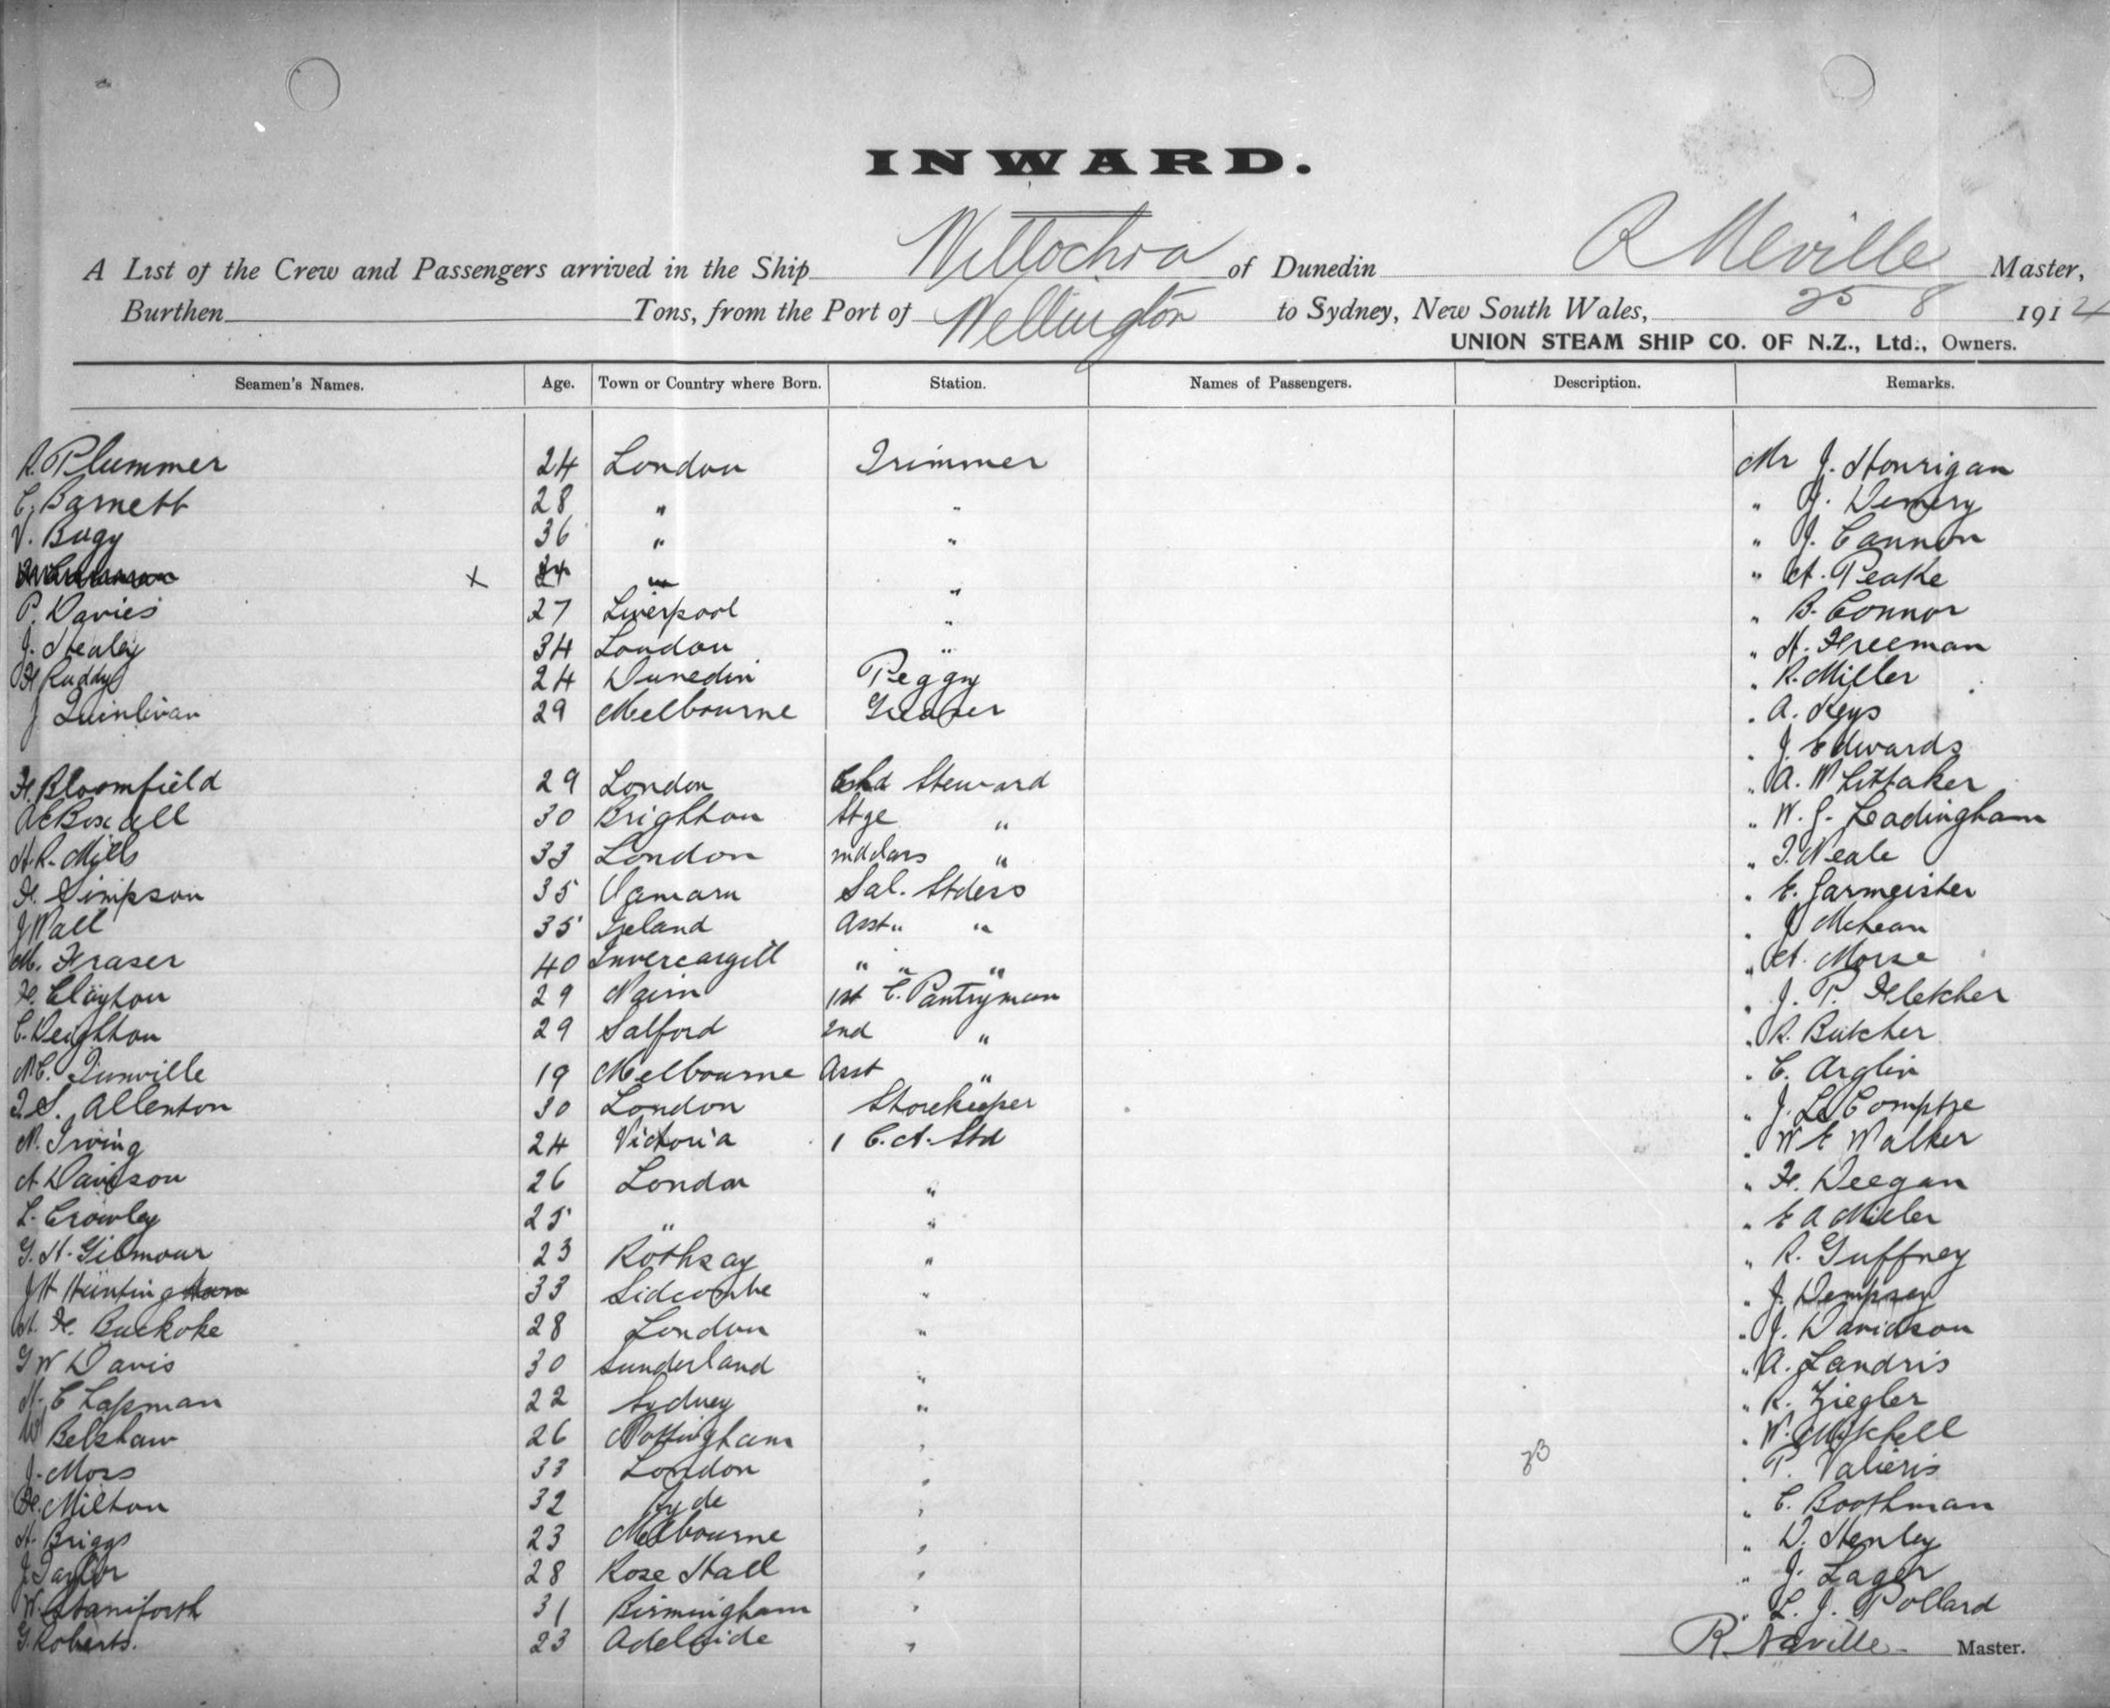 INWARD.
A List of the Crew and Passengers arrived in the Ship Willochra of Dunedin R Neville Master,
Burthen Tons, from the Port of Wellington to Sydney, New South Wales, 25 8 1914
UNION STEAM SHIP CO. OF N.Z., Ltd., Owners.
Seamen's Names. Age. Town or Country where Born. Station. Names of Passengers. Description. Remarks.
R. Plummer 24 London Trimmer Mr J. Hourigan
C. Barnett 28 " " " J. Demery
V. Bugy 36 " " " J. Cannon
x 24 " " " A. Peake
P. Davies 27 Liverpool " " B. Connor
J. Healey 34 London " " H. Freeman
H Ruddy 24 Dunedin Peggy " R. Miller
J Quinlivan 29 Melbourne Greaser " A. Keys
" J. Edwards
H. Bloomfield 29 London Steward " A. Whittaker
A E Boxall 30 Brighton Stge " " W. J. Leadingham
H. R. Mills 33 London " " T. Neale
H. Simpson 35 Oamaru Sal. Stdess " E. Garmeister
J Wall 35 Ireland Asst " " " J McLean
M. Fraser 40 Invercargill " " " " A. Morse
H. Clayton 29 Nairn 1st C. Pantryman " J. P. Fletcher
C. Deighton 29 Salford 2nd " " R. Butcher
N. C. Tunville 19 Melbourne Asst " " C. Arglin
T. S. Allenton 30 London Storekeeper " J. Le Comptze
N. Irving 24 Victoria 1 C. A. Std " W E Walker
A Davison 26 London " " H. Deegan
L. Crowley 25 " " " E A Miller
G. H. Gilmour 23 Rothsay " " R. Guffney
J H Huntington 33 Sidcombe " " J. Dempsey
A. H. Buckoke 28 London " " J. Davidson
G W Davis 30 Sunderland " " A. Landris
H. Chapman 22 Sydney " " R. Ziegler
W Belshaw 26 Nottingham " " W. Mitchell
J. Moss 33 London " " P. Valieris
H. Milton 32 Ryde " " C. Boothman
A. Briggs 23 Melbourne " " D. Henley
J. Taylor 28 Rose Hall " " J. Lager
W. Staniforth 31 Birmingham " " L. J. Pollard
G. Roberts. 23 Adelaide " R Neville Master.